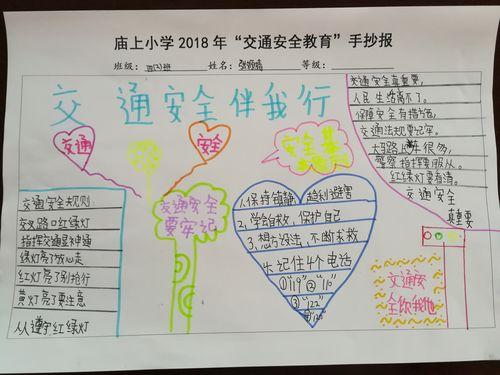 庙上小学2018年“交通安全教育”手抄报
班级：四(3)班 姓名： 等级：
交通安全伴我行
交通
安全
安全第
交通安全
要牢记
交通安全规则
交叉路口红绿灯
指挥交通显神通
绿灯亮了放心走
红灯亮了别抢行
黄灯亮了要注意
人人遵守红绿灯
1、保持镇静，趋利避害
2、学会自救，保护自己
3、想方设法，不断求救
4、记住4个电话
①“119”②“110”
③“122”
④“120”
交通安全真重要，
人民生活离不了。
保障安全有措施，
交通法规要记牢。
大马路上车很多，
警察指挥要服从。
红绿灯要看清。
交通安全
真重要
交通安
全你我他